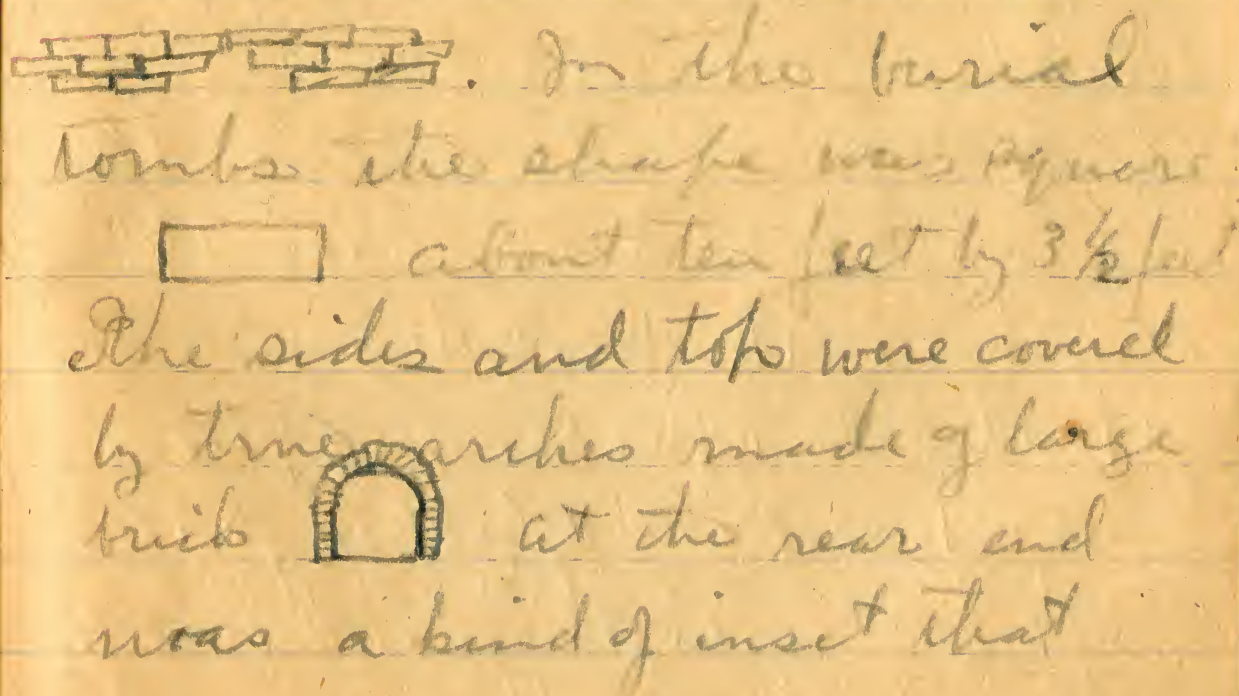 . In the burial
tombs the shape was square
about ten feet by 3 1/2 feet
The sides and top were covered
by true arches made of large
brick at the rear end
was a kind of inset that